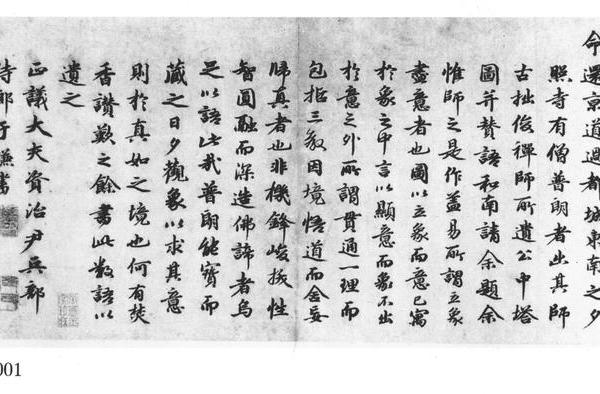 命還京道過都城東南之夕
照寺有僧普朗者出其師
古拙俊禪師所遺公中塔
圖并贊語和南請余題余
惟師之是作蓋易所謂立象
盡意者也圖以立象而意已寓
於象之中言以顯意而象不出
於意之外所謂貫通一理而
包括三教因境悟道而舍妄
歸真者也非機鋒峻拔性
智圓融而深造佛諦者烏
足以語此哉普朗能寶而
藏之日夕觀象以求其意
則於真如之境也何有焚
香讚歎之餘書此數語以
遺之
正議大夫資治尹兵部
侍郎于謙書
001